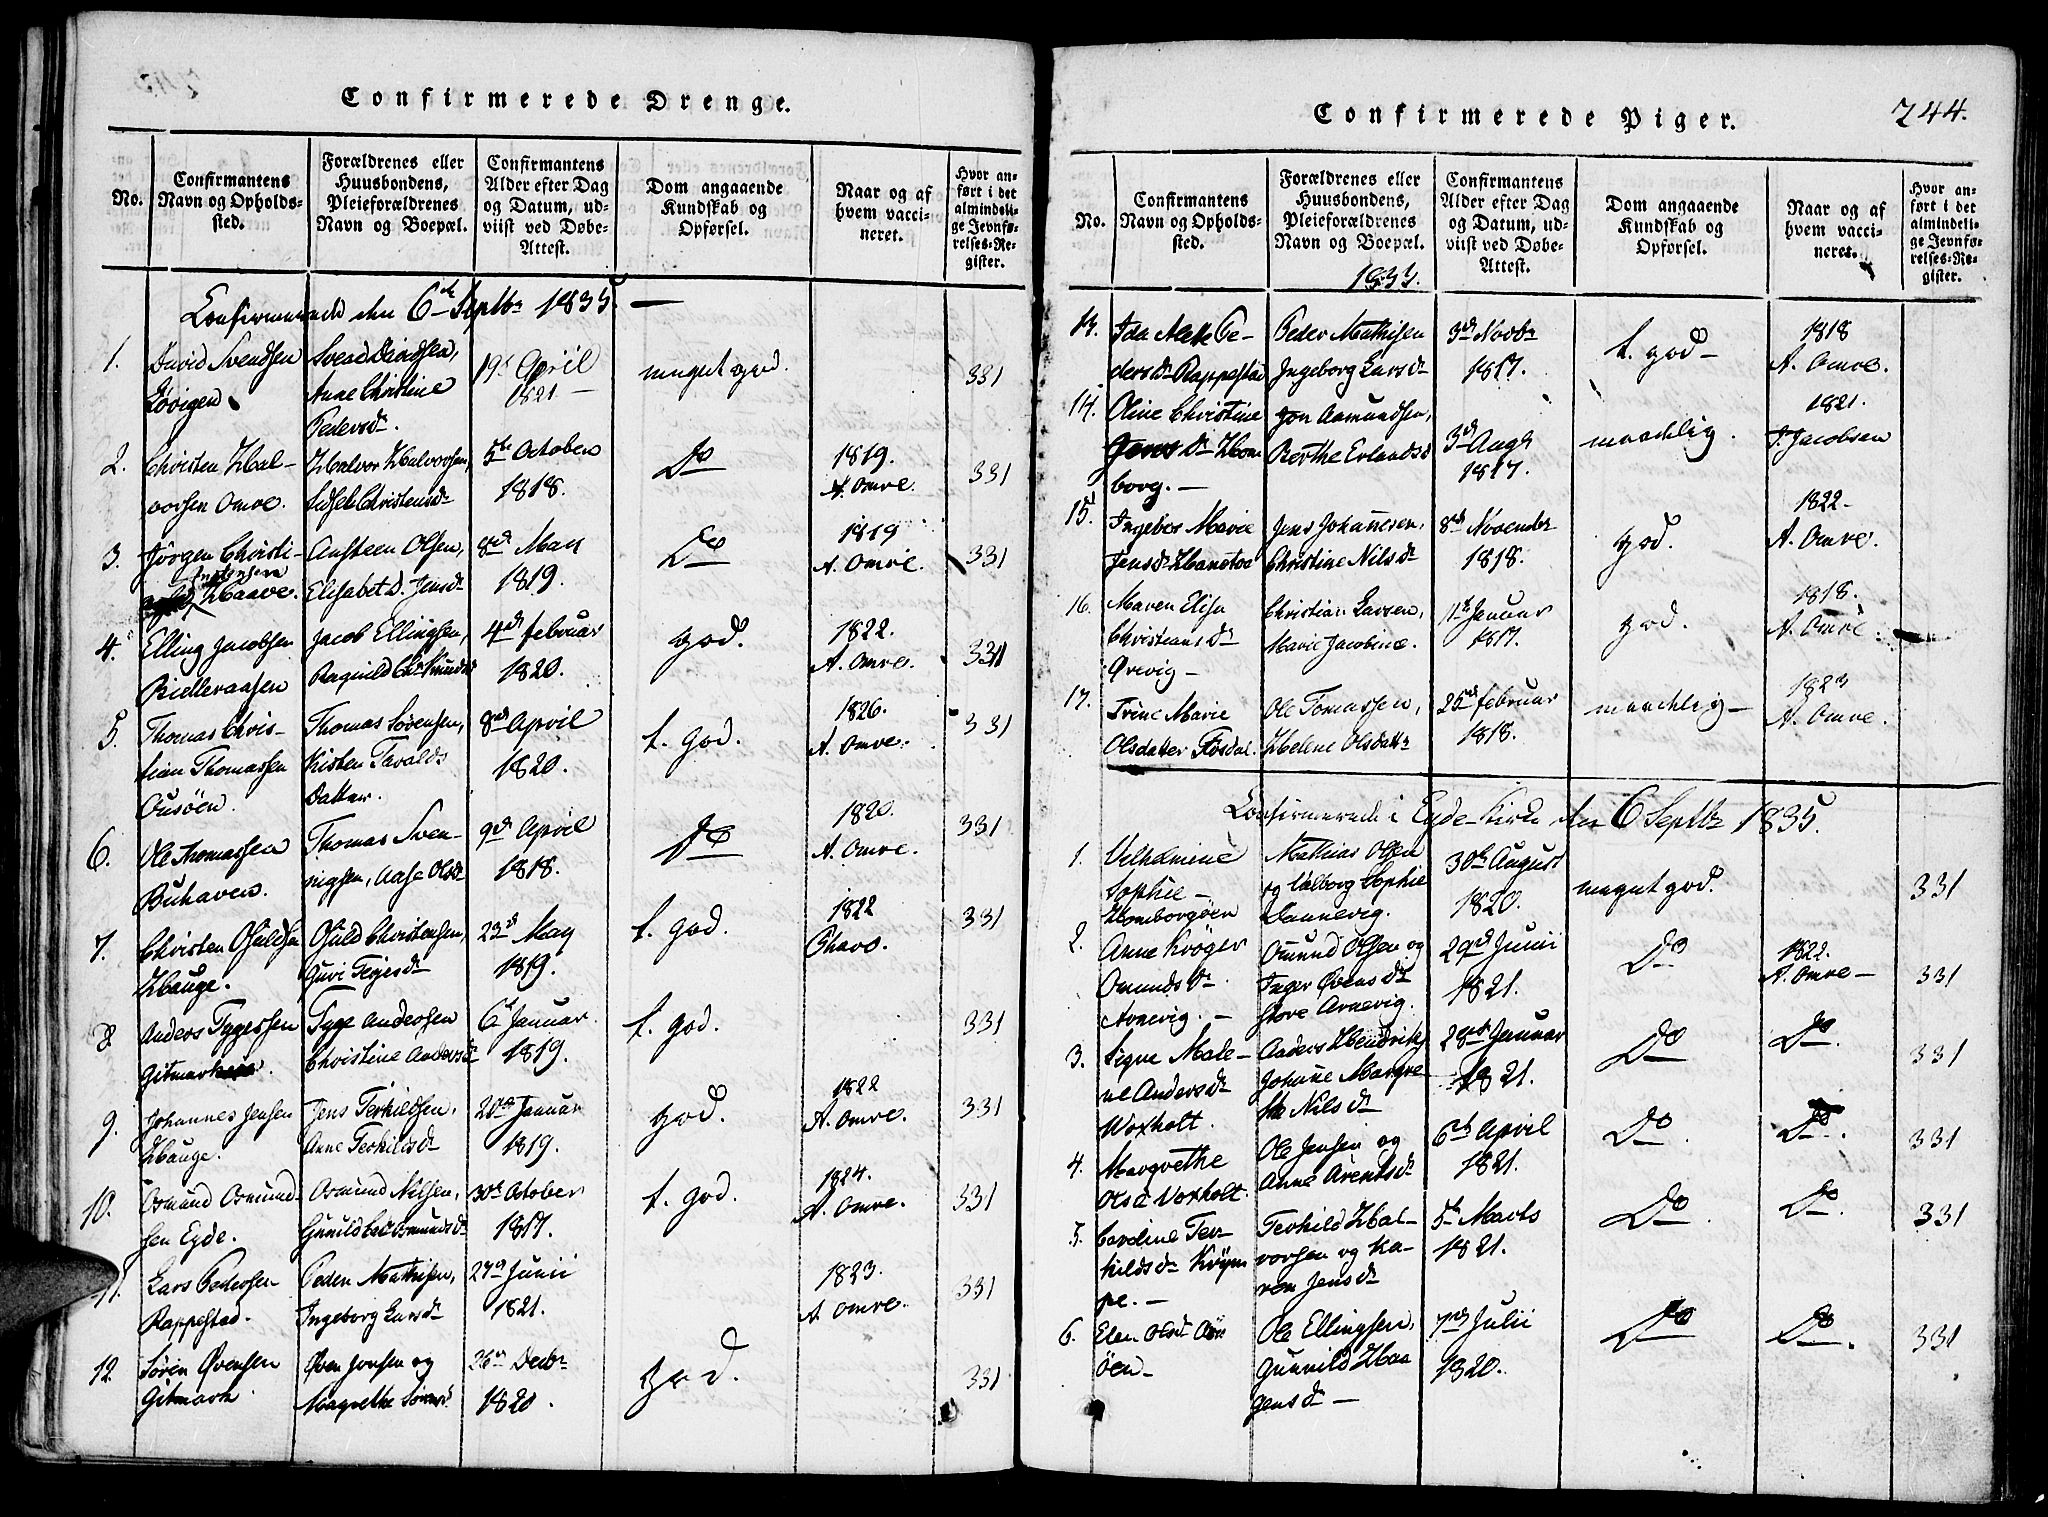 Confirmerede Drenge.
No.
Confirmantens
Navn og Opholds-
sted.
Forældrenes eller
Huusbondens,
Pleieforældrenes
Navn og Boepæl.
Confirmantens
Alder efter Dag
og Datum, ud-
viist ved Døbe-
Attest.
Dom angaaende
Kundskab og
Opførsel.
Naar og af
hvem vacci-
neret.
Hvor an-
ført i det
almindeli-
ge Jevnfø-
relses-Re-
gister.
Confirmerede den 6te Septbr 1835. —
1.
David Svendsen
Løvigen
Svend Davidsen,
Anne Christine
Pedersdr.
19de April
1821 —
meget god.
331
2.
Christen Hal-
vorsen Omre.
Halvor Halvorsen,
Christensdr
5te October
1818.
Do
1819.
A. Omre.
331
3.
Jörgen Christi-
Haave.
Austeen Olsen,
Elisabet D. Jensdr
8de May
1819.
Do
1819
A. Omre.
331
4.
Elling Jacobsen
Jacob Ellingsen,
4de februar
1820.
god.
1822.
A. Omre.
331
5.
Thomas Chris-
tian Thomassen
Ousöen.
Thomas Sörensen,
Kirsten Tavalds
Datter.
8de April
1820.
t. god.
1826.
A. Omre.
331
6.
Ole Thomassen
Buhaven.
Thomas Sven-
nigsen, Aase Olsdr
9de April
1818.
Do
1820.
A. Omre.
331
7.
Christen Osuldsen
Hauge.
Osuld Christensen,
Guri Tejesdr
23de May
1819.
t. god.
1822
Thavs.
331
8
Anders Tygessen
Gitmark
Tyge Andersen
Christine Andersdr
6te Januar
1819.
t. god.
331
9.
Johannes Jensen
Hauge.
Jens Terkildsen,
Anne Terkildsdr
20de Januar
1819.
god.
1822
A. Omre.
331
10.
Osmund Osmund-
sen Eyde.
Osmund Nilsen,
30te October
1817.
t. god.
1824.
A. Omre.
331
11.
Lars Pedersen
Rappestad.
Peder Mathisen,
Ingeborg Larsdr
27de Junii
1821.
1823.
A Omre.
331
12.
Sören Øvensen
Gitmark
Øven Jonsen og
Magrethe
26de Decbr
1820.
god.
331
Confirmerede Piger.
244.
No.
Confirmantens
Navn og Opholds-
sted.
Forældrenes eller
Huusbondens,
Pleieforældrenes
Navn og Boepæl.
1833.
Confirmantens
Alder efter Dag
og Datum, ud-
viist ved Døbe-
Attest.
Dom angaaende
Kundskab og
Opførsel.
Naar og af
hvem vacci-
neret.
Hvor an-
ført i det
almindeli-
ge Jevnfø-
relses-Re-
gister.
13.
Ida Mette Pe-
dersdr Rappestad
Peder Mathisen
Ingeborg Larsdr
3de Novbr
1817.
t. god —
1818
A. Omre.
14.
Oline Christine
Hom
borg. —
Jon Aamundsen,
Berthe Erlandsd
3de Augs
1817.
maadelig.
1821.
J. Jacobsen
15.
Ingebor Marie
Jensdr
Jens Johannesen,
Christine Nilsdr
8de November
1818.
god.
1822 —
A. Omre.
16.
Maren Elisa
Christiansdr
Ørevig —
Christian Larsen,
Marie Jacobine.
11te Januar
1817.
god.
1818.
A. Omre.
17.
Trine Marie
Olsdatter Fosdal.
Ole Tomassen,
Helene Olsdattr
25de februar
1818.
maadelig —
1823
A. Omre.
Confirmerede i Eyde-Kirke den 6 Septbr 1835.
1.
Vilhelmine
Sophie —
Homborgöen
Mathias Olsen
og Valborg Sophie
Dannevig.
30te August
1820.
meget god.
331
2.
Anne Kröger
Omunds dr.
Arnevig. —
Omund Olsen og
Inger Øvensdr
store Arnevig.
29de Junii
1821.
Do
1822.
A. Omre —
331
3.
Signe Male-
ne Andersdr
Woxholt.
Anders Hendriks
Johanne Margre
the Nilsdr
28de Januar
1821.
Do
Do
331
4.
Margrethe
Olsd Voxholt.
Ole Jensen og
Anne Arentsdr
6te April
1821.
Do.
Do.
331
5.
Caroline Ter-
kildsdr Kröm
pe. —
Terkild Hal-
vorsen og Ka-
ren Jensdr
5te Marts
1821.
Do.
Do.
331
6.
Elen Olsdr
öen —
Ole Ellingsen,
Gunnild Haa
gensdr —
7de Julii
1820.
Do
Do.
331